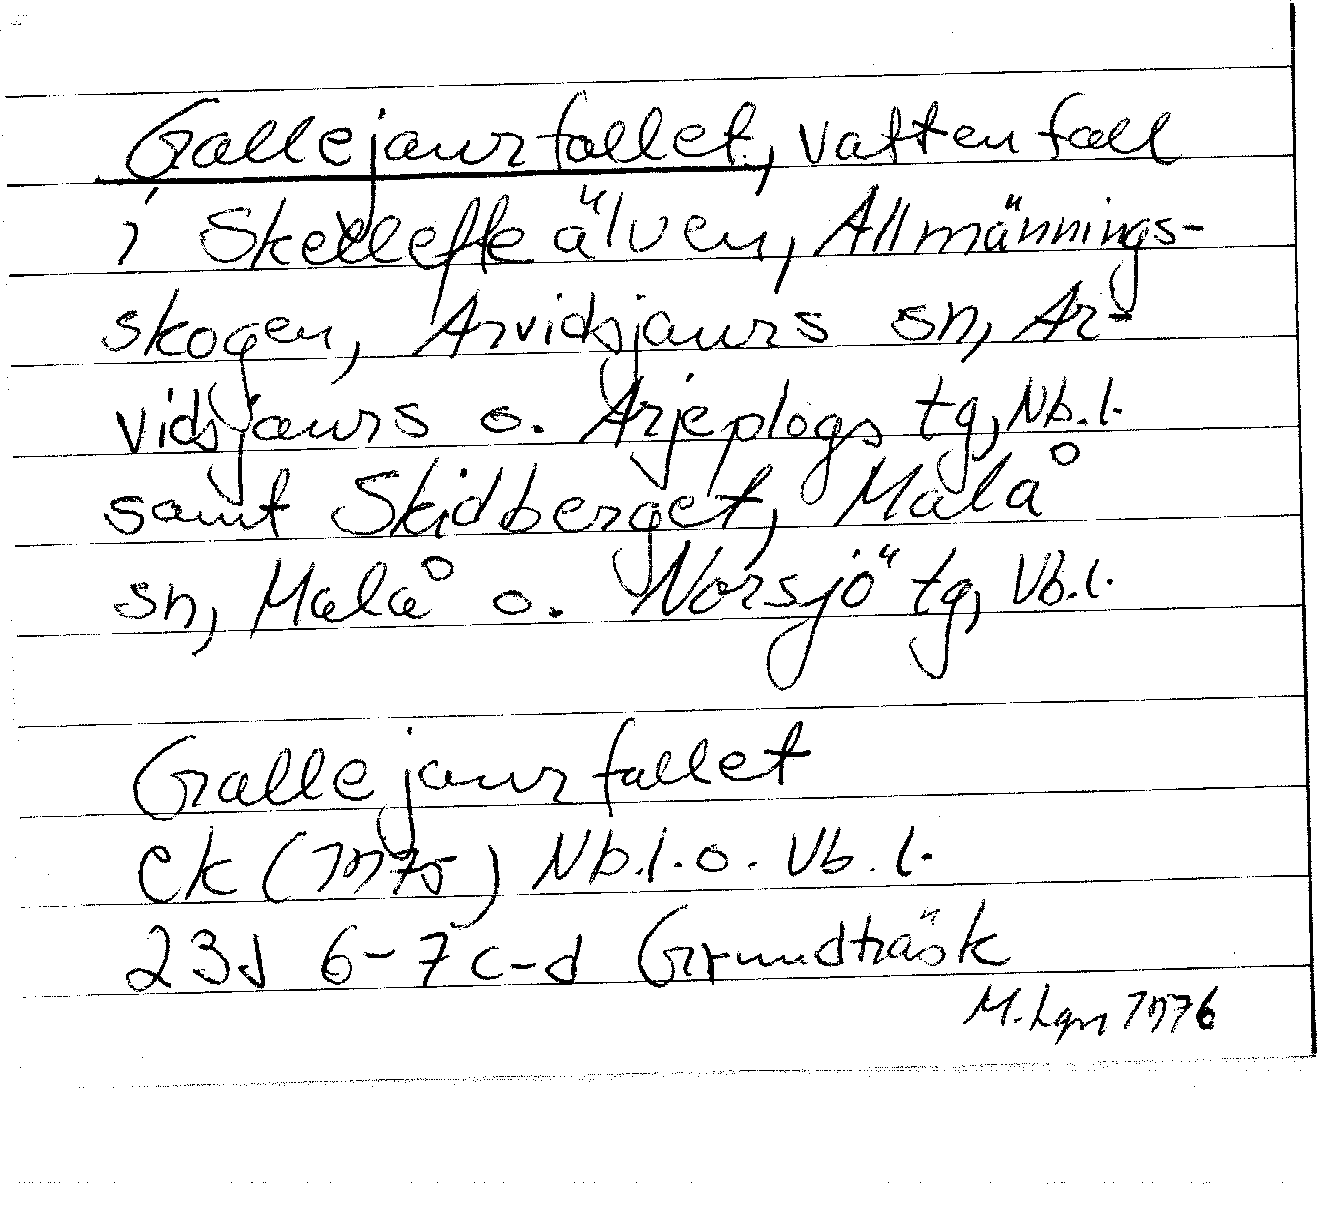 Gallejaurfallet, vattenfall
i Skellefte älven, Allmännings-
skogen, Arvidsjaurs sn, Ar-
vidsjaurs o. Arjeplogs tg, Nb.l.
samt Skidberget, Malå
sn, Malå o. Norsjö tg, Vb.l.
Gallejaurfallet
ek (1975) Nb.l. o. Vb.l.
23J 6-7 c-d Grundträsk
M. Lgn 1976